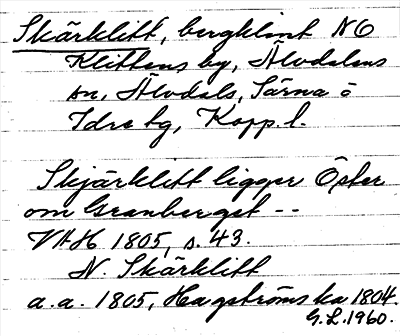 Skärklitt, bergklint NO
Klittens by, Älvdalens
sn, Älvdals, Särna o
Idre tg, Kopp. l.
Skjärklitt ligger Öster
om Granberget --
VAH 1805, s. 43.
N. Skärklitt
a.a. 1805, Hagströms ka 1804.
G.L. 1960.